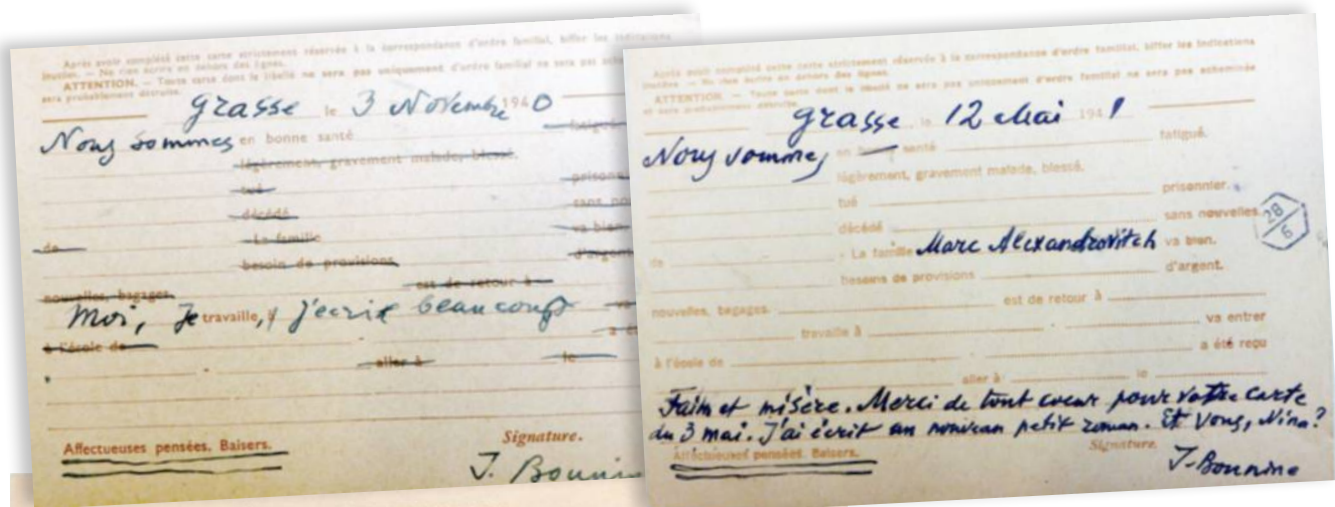 Après avoir complété cette carte strictement réservée à la correspondance d'ordre familial, biffer les indications
inutiles. — Ne rien écrire en dehors des lignes.
ATTENTION. — Toute carte dont le libellé ne sera pas uniquement d'ordre familial ne sera pas
sera probablement détruite.
Grasse le 3 Novembre 1940
Nous sommes en bonne santé fatigué
légèrement, gravement malade, blessé.
tué
décédé
de La famille va bien
besoin de provisions d'argent
nouvelles, bagages. est de retour à
Moi, Je travaille, j'écris beaucoup
à l'école de
aller à le
Affectueuses pensées. Baisers.
Signature.
J. Bounine
Après avoir complété cette carte strictement réservée à la correspondance d'ordre familial, biffer les indications
inutiles. — Ne rien écrire en dehors des lignes.
ATTENTION. — Toute carte dont le libellé ne sera pas uniquement d'ordre familial ne sera pas acheminée
et sera probablement détruite.
Grasse le 12 Mai 1941
Nous sommes en santé fatigué.
légèrement, gravement malade, blessé.
tué prisonnier.
décédé sans nouvelles
28
6
de La famille Marc Alexandrovitch va bien.
besoins de provisions d'argent.
nouvelles, bagages. est de retour à
travaille à va entrer
à l'école de a été reçu
aller à le
Faim et misère. Merci de tout coeur pour votre carte
du 3 mai. J'ai écrit un nouveau petit roman. Et Vous, Nina?
Affectueuses pensées. Baisers.
Signature.
J. Bounine